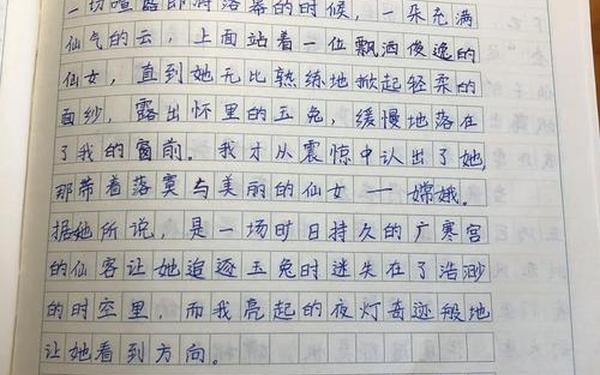 一切喧嚣即将落幕的时候，一朵充满
仙气的云，上面站着一位飘洒俊逸的
仙女，直到她无比熟练地掀起轻柔的
面纱，露出怀里的玉兔，缓慢地落在
了我的窗前。我才从震惊中认出了她，
那带着落寞与美丽的仙女——嫦娥。
据她所说，是一场时日持久的广寒宫
的仙客让她追逐玉兔时迷失在了浩渺
的时空里，而我亮起的夜灯奇迹般地
让她看到方向。